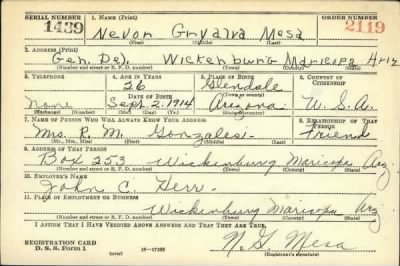 SERIAL NUMBER 1. NAME (Print) ORDER NUMBER
1439 Nevon Mesa 2119
(First) (Middle) (Last)
2. ADDRESS (Print)
Gen. Del. Wickenburg Maricopa Ariz
(Number and street or R. F. D. number) (Town) (County) (State)
3. TELEPHONE 4. AGE IN YEARS 5. PLACE OF BIRTH 6. COUNTRY OF CITIZENSHIP
26 Glendale
DATE OF BIRTH (Town or county)
None Sept. 2. 1914 Arizona U.S.A.
(Exchange) (No.) (Mo.) (Day) (Yr.) (State or country)
7. NAME OF PERSON WHO WILL ALWAYS KNOW YOUR ADDRESS 8. RELATIONSHIP OF THAT PERSON
Mrs. R. M. Gonzales - Friend
(Mr., Mrs., Miss) (First) (Middle) (Last)
9. ADDRESS OF THAT PERSON
Box 253 Wickenburg Maricopa Arz
(Number and street or R. F. D. number) (Town) (County) (State)
10. EMPLOYER'S NAME
John C. Herr -
11. PLACE OF EMPLOYMENT OR BUSINESS
Wickenburg Maricopa Arz
(Number and street or R. F. D. number) (Town) (County) (State)
I AFFIRM THAT I HAVE VERIFIED ABOVE ANSWERS AND THAT THEY ARE TRUE.
REGISTRATION CARD
D. S. S. Form 1 (over) 16-17105 N. G. Mesa
(Registrant's signature)